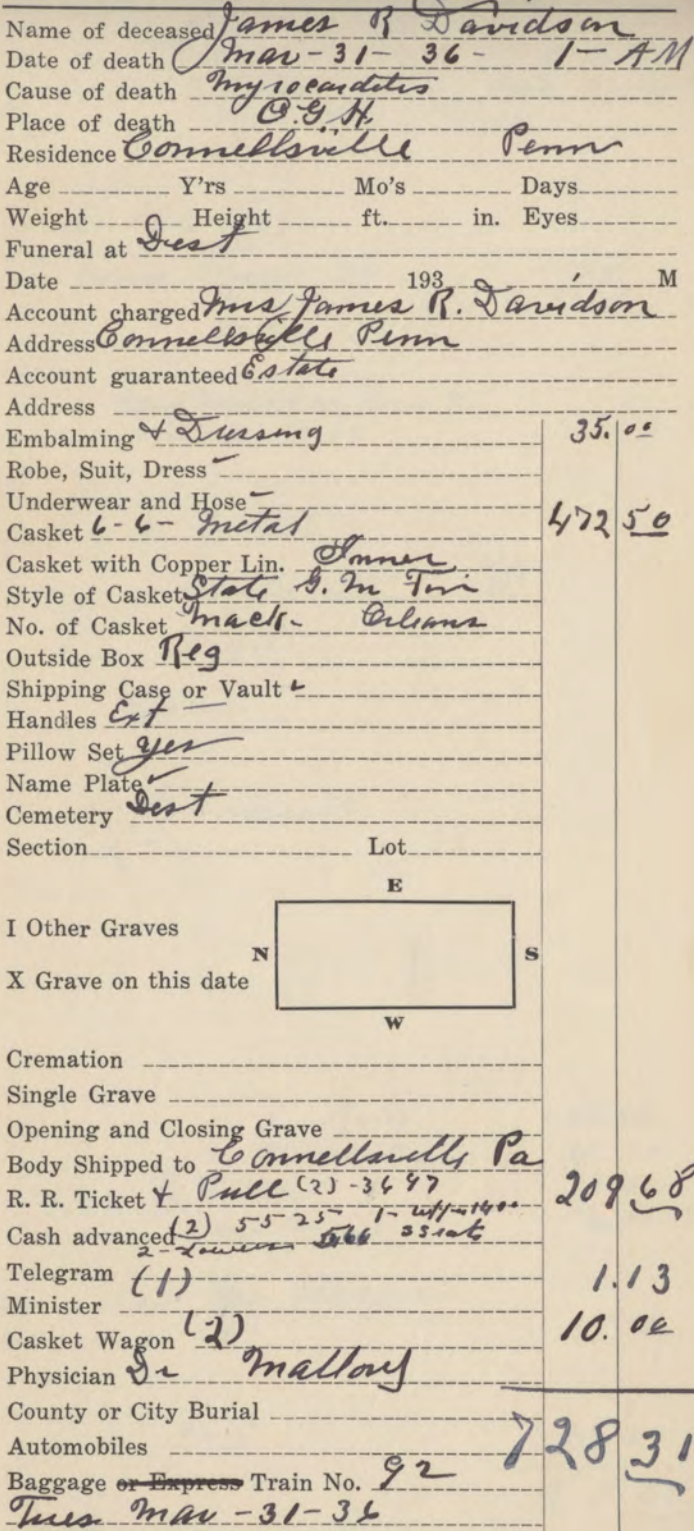 Name of deceased James R Davidson
Date of death Mar - 31 - 36 - 1 - AM
Cause of death Myrocarditis
Place of death O.G.H.
Residence Connellsville Penn
Age Y'rs Mo's Days
Weight Height ft. in. Eyes
Funeral at Dest
Date 193 M
Account charged Mrs James R. Davidson
Address Connellsville Penn
Account guaranteed Estate
Address
Embalming & Dressing 35.00
Robe, Suit, Dress
Underwear and Hose
Casket 6-6- Metal 472 50
Casket with Copper Lin. Inner
Style of Casket State G. M
No. of Casket Mack- Orleans
Outside Box Reg
Shipping Case or Vault
Handles Ext
Pillow Set yes
Name Plate
Cemetery Dest
Section Lot
E
I Other Graves
N S
X Grave on this date
W
Cremation
Single Grave
Opening and Closing Grave
Body Shipped to Connellsville Pa
R. R. Ticket & Pull (2) - 3647 209 68
Cash advanced (2) 55 25
Telegram (1) 1.13
Minister
Casket Wagon (2) 10.00
Physician Dr Mallory
County or City Burial
728 31
Automobiles
Baggage or Express Train No. 92
Tues Mar - 31 - 36